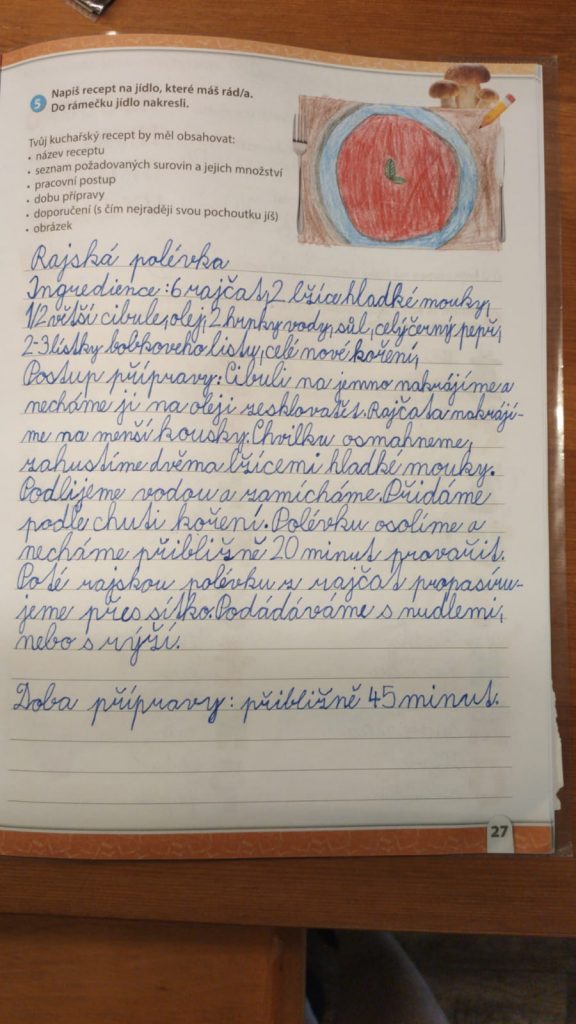 5 Napiš recept na jídlo, které máš rád/a.
Do rámečku jídlo nakresli.
Tvůj kuchařský recept by měl obsahovat:
• název receptu
• seznam požadovaných surovin a jejich množství
• pracovní postup
• dobu přípravy
• doporučení (s čím nejraději svou pochoutku jíš)
• obrázek
Rajská polévka
Ingredience: 6 rajčat, 2 lžíce hladké mouky,
1/2 větší cibule, olej, 2 hrnky vody, sůl, celý černý pepř,
2-3 lístky bobkoveho listu, celé nové koření,
Postup přípravy: Cibuli na jemno nakrájíme a
necháme ji na oleji zesklovatět. Rajčata nakrájí-
me na menší kousky. Chvilku osmahneme,
zahustíme dvěma lžícemi hladké mouky.
Podlijeme vodou a zamícháme. Přidáme
podle chuti koření. Polévku osolíme a
necháme přibližně 20 minut provařit.
Poté rajskou polévku z rajčat propasíru-
jeme přes sítko. Podádáváme s nudlemi,
nebo s rýží.
Doba přípravy: přibližně 45 minut.
27